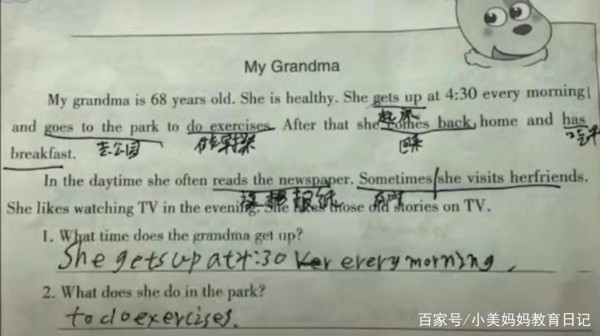 My Grandma
My grandma is 68 years old. She is healthy. She gets up at 4:30 every morning
and goes to the park to do exercises. After that she comes back home and has
起床
去公园
回来
breakfast.
In the daytime she often reads the newspaper. Sometimes she visits herfriends.
报纸
She likes watching TV in the evening. She likes those old stories on TV.
1. What time does the grandma get up?
She gets up at 4:30 every morning.
2. What does she do in the park?
to do exercises.
百家号/小美妈妈教育日记